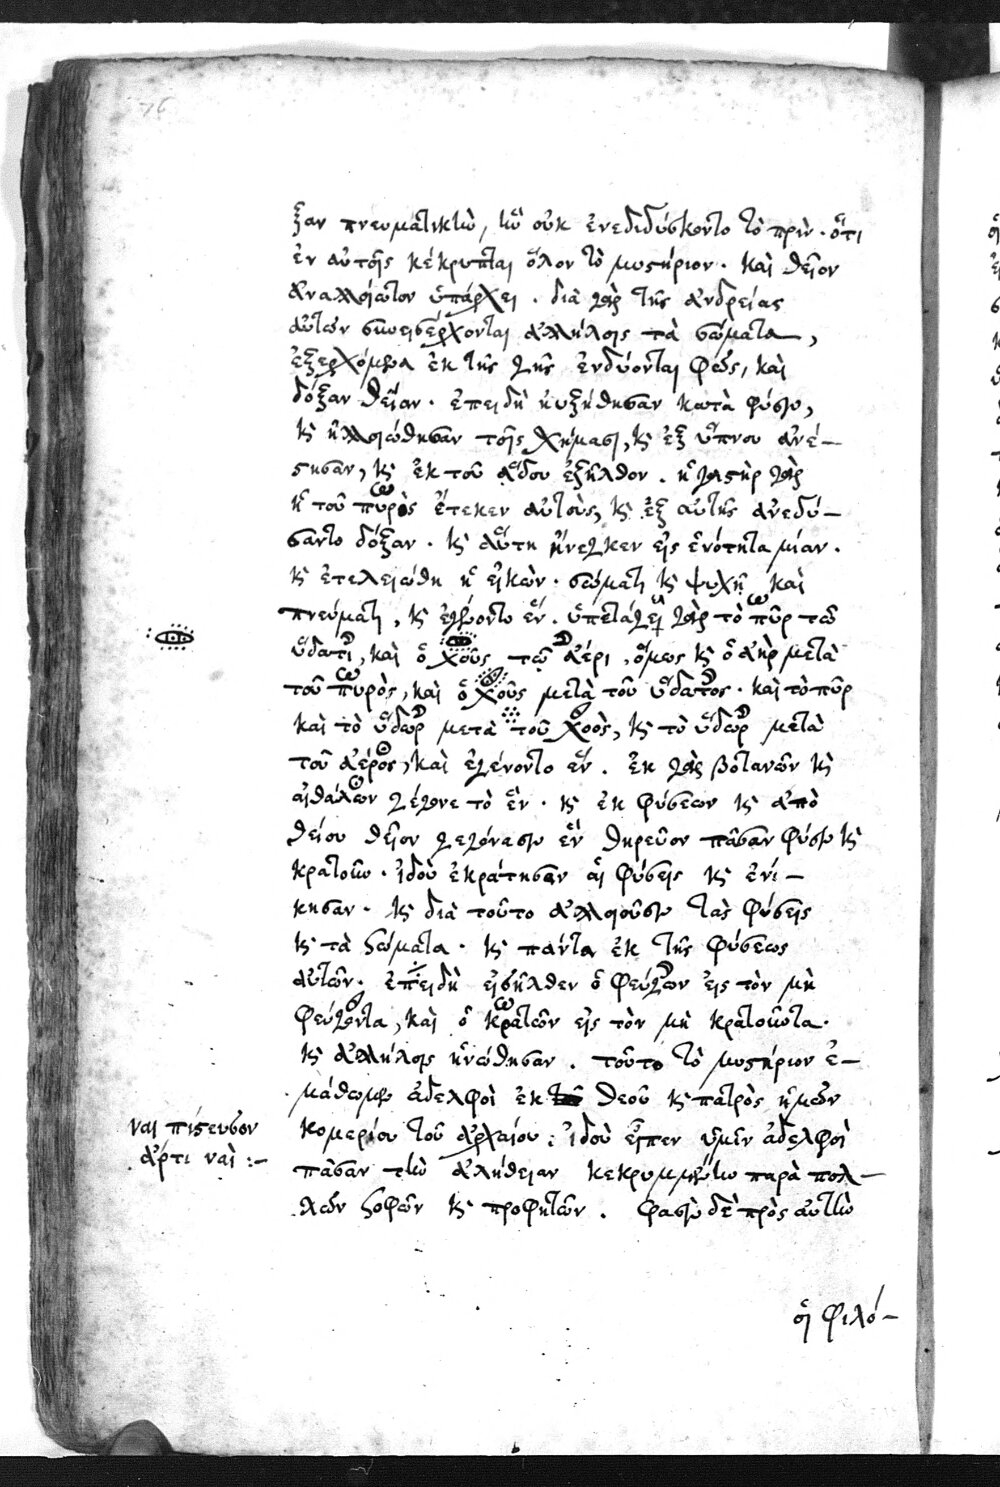 ξαν πνευματικὴν, ἣν οὐκ ἐνεδιδύσκοντο τὸ πρὶν. ὅτι
ἐν αὐτοῖς κέκρυπται ὅλον τὸ μυστήριον. καὶ θεῖον
ἀναλλοίωτον ὑπάρχει. διὰ γὰρ τῆς ἀνδρείας
αὐτῶν συνεισέρχονται ἀλλήλοις τὰ σώματα,
ἐξερχόμενα ἐκ τῆς γῆς ἐνδύονται φῶς, καὶ
δόξαν θεῖαν. ἐπειδὴ ηὐξήθησαν κατὰ φύσιν,
κ ἠλλοιώθησαν τοῖς χήμασι, κ ἐξ ὕπνου ἀνέ-
στησαν, κ ἐκ τοῦ ἅδου ἐξῆλθον. ἡ γαστὴρ γὰρ
ἡ τοῦ πυρὸς ἔτεκεν αὐτοὺς, κ ἐξ αὐτῆς ἀνεδύ-
σαντο δόξαν. κ αὕτη ἤνεγκεν εἰς ἑνότητα μίαν.
κ ἐτελειώθη ἡ εἰκὼν. σώματι κ ψυχῇ καὶ
πνεύματι, κ ἐγένοντο ἕν. ὑπετάγη γὰρ τὸ πῦρ τῶ
ὕδατι, καὶ ὁ χοῦς τῷ ἀέρι, ὅμως κ ὁ ἀὴρ μετὰ
τοῦ πυρὸς, καὶ ὁ χοῦς μετὰ τοῦ ὕδατος. καὶ τὸ πῦρ
καὶ τὸ ὕδωρ μετὰ τοῦ χοὸς, κ τὸ ὕδωρ μετὰ
τοῦ ἀέρος, καὶ ἐγένοντο ἕν. ἐκ γὰρ βοτανῶν κ
αἰθάλων γέγονε τὸ ἕν. κ ἐκ φύσεων κ ἀπὸ
θείου θεῖον γεγόνασιν ἓν θηρεῦον πᾶσαν φύσιν κ
κρατοῦν. ἰδοὺ ἐκράτησαν αἱ φύσεις κ ἐνί-
κησαν. κ διὰ τοῦτο ἀλλοιοῦσιν τὰς φύσεις
κ τὰ σώματα. κ πάντα ἐκ τῆς φύσεως
αὐτῶν. ἐπειδὴ εἰσῆλθεν ὁ φεύγων εἰς τὸν μὴ
φεύγοντα, καὶ ὁ κρατῶν εἰς τὸν μὴ κρατοῦντα.
κ ἀλλήλοις ἡνώθησαν. τοῦτο τὸ μυστήριον ἐ-
μάθωμεν ἀδελφοὶ ἐκ θεοῦ κ πατρὸς ἡμῶν
κομερίου τοῦ ἀρχαίου: ἰδοὺ εἶπεν ὑμῖν ἀδελφοὶ
πᾶσαν τὴν ἀλήθειαν κεκρυμμένην παρὰ πολ-
λῶν σοφῶν κ προφητῶν. φασὶν δὲ πρὸς αὐτὴν
οἱ φιλό-
ναι πίστευσον
ἄρτι ναὶ :-